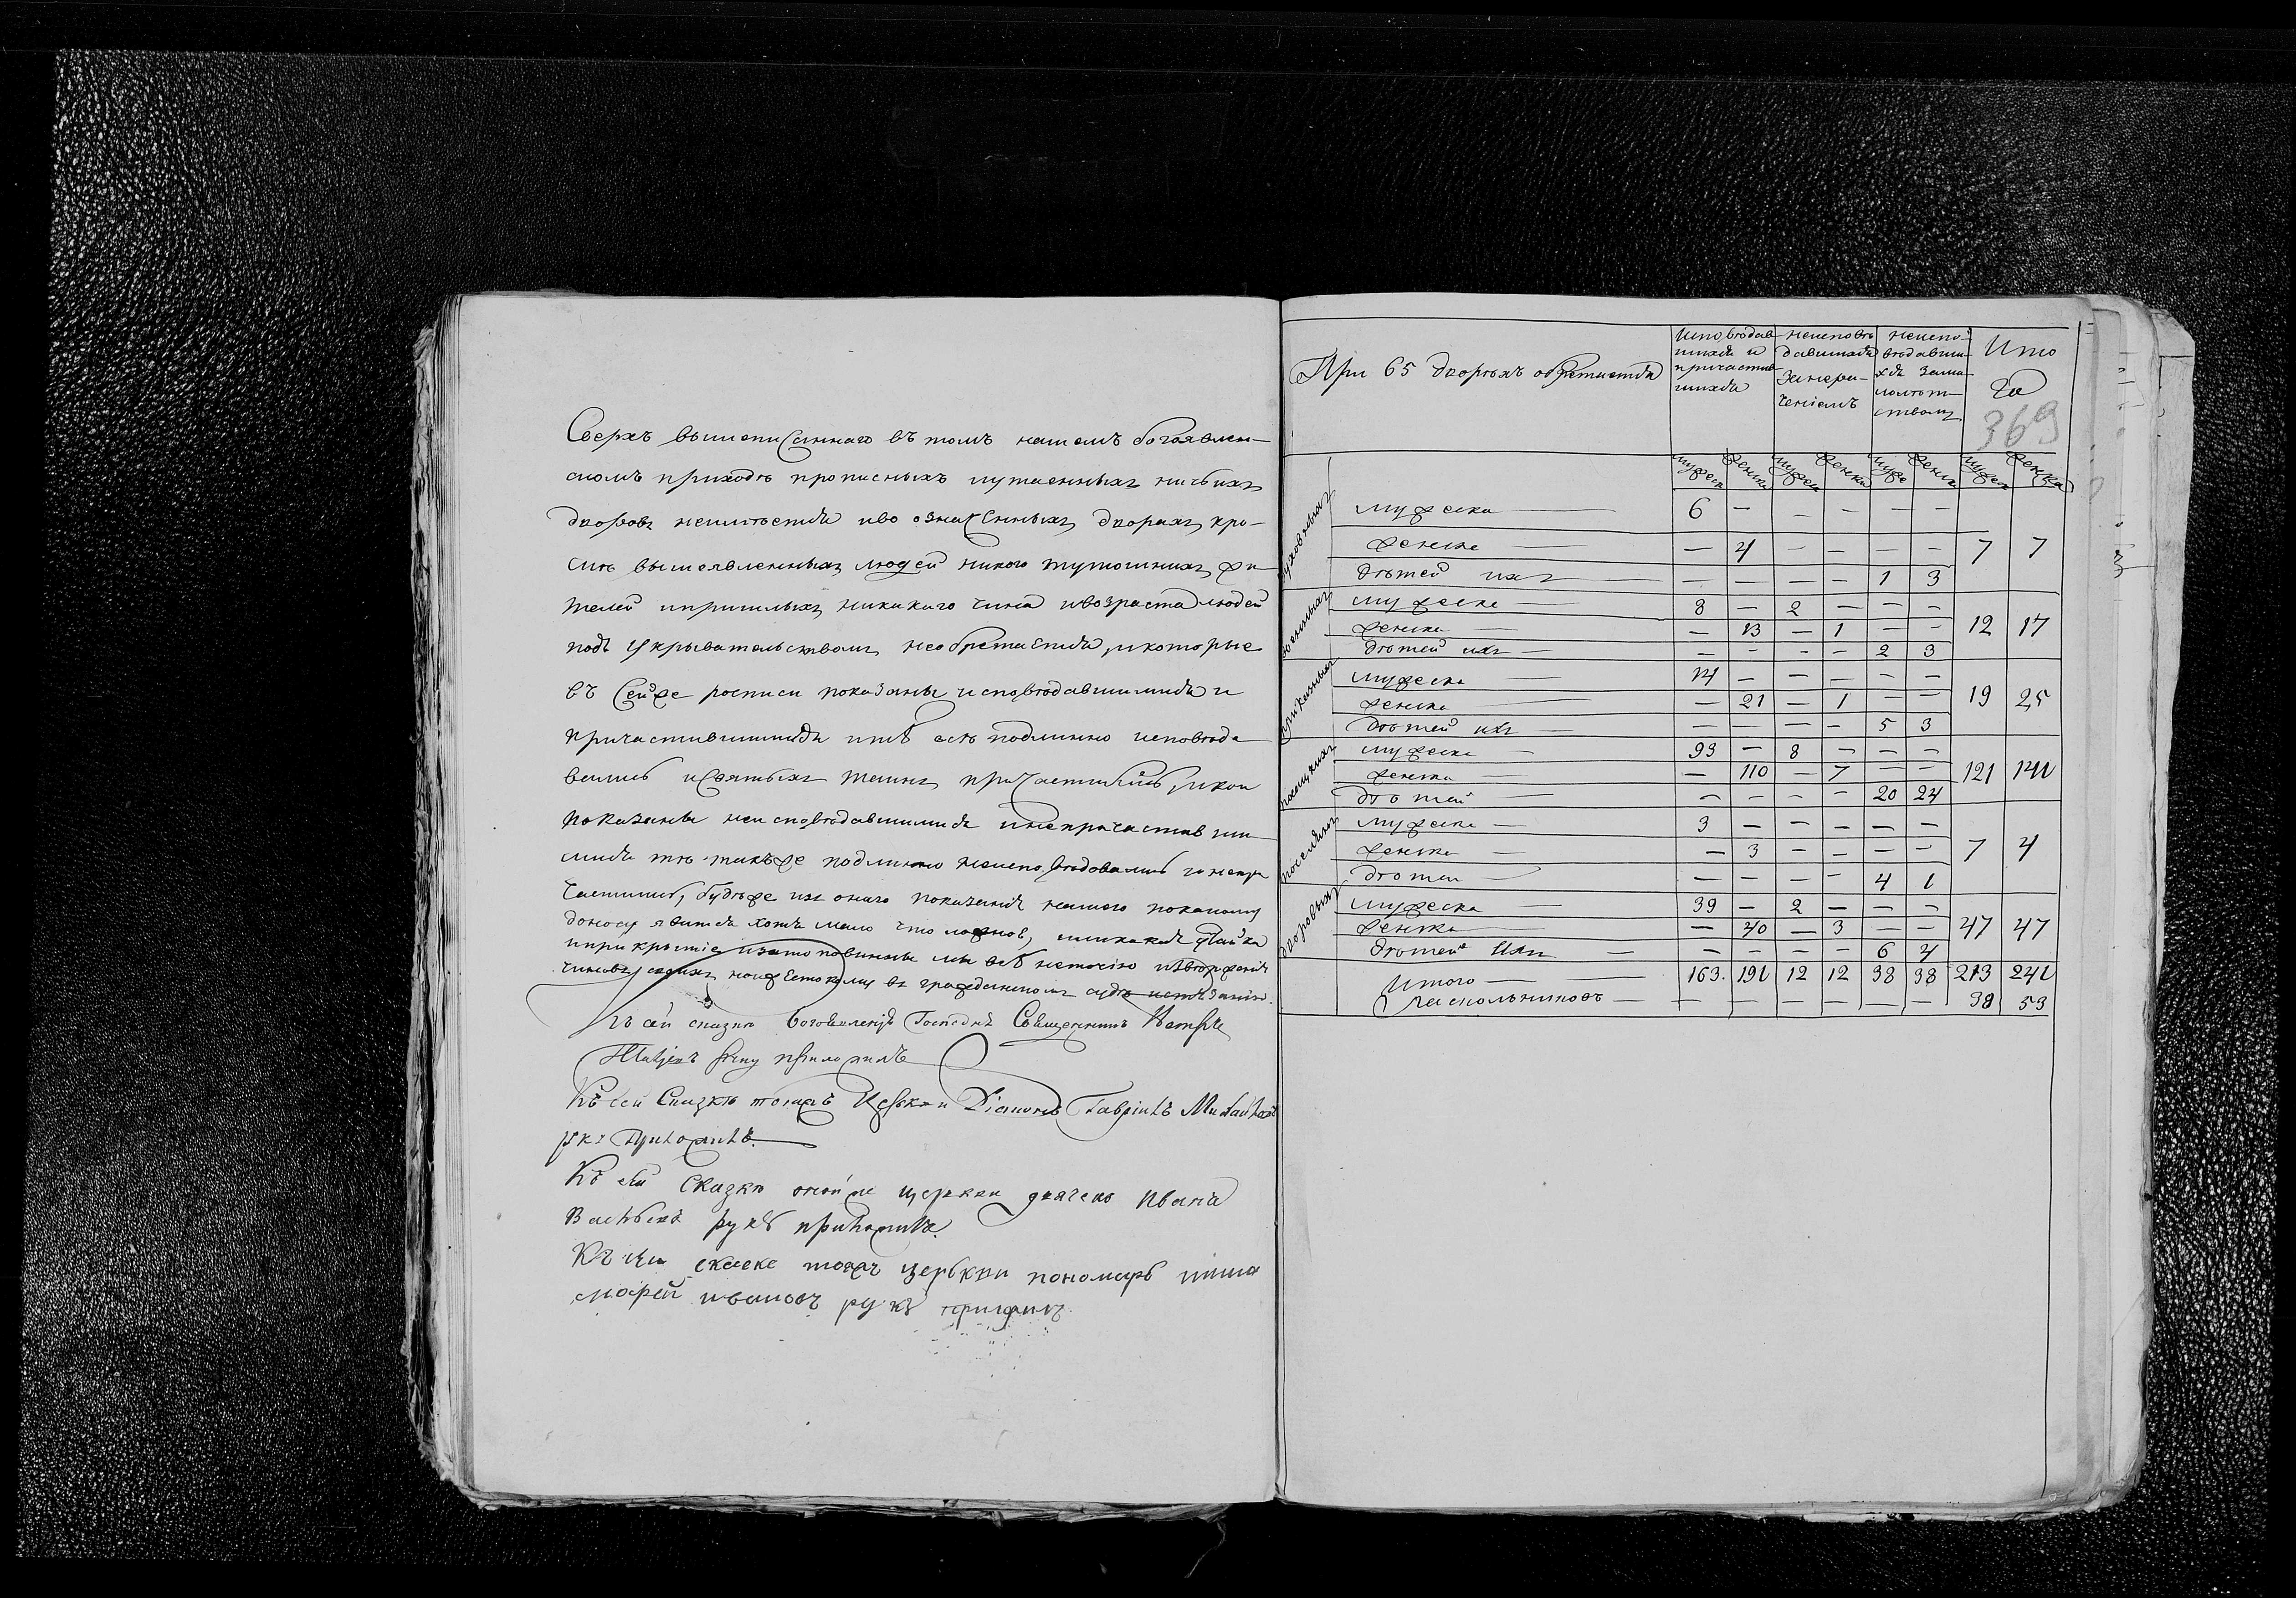 Сверхъ вышеписаннаго въ томъ нашемъ богоявлен-
скомъ приходѣ прописныхъ иутаенныхъ ничьихъ
дворовъ неимѣется иво означенныхъ дворахъ, кро-
мѣ вышеявленныхъ людей никого тутошнихъ жи-
телей ипришлыхъ никакаго чина ивозраста людей
подъ укрывательствомъ необретается, икоторые
въ сейже росписи показаны исповѣдавшимися и
причастившимися итѣ всѣ подлинно исповѣда
вались исвятыхъ таинъ причастились, икои
показаны неисповѣдавшимися инепричастивши
мися тѣ такъже подлинно неисповѣдовались инепри
частились, будеже изъ онаго показания нашего покакому
доносу явится хотя мало что ложнов,
иприкрытие изато повинны мы всѣ
чиновъ въ гражданскомъ судѣ истязанию.
Къ сей сказки Богоявления Господня Священникъ Петръ
руку приложилъ
Къ сей Сказкѣ тояжъ Церкви Диаконъ Гавриилъ Михайловъ
руку Приложилъ.
Къ сей Сказкѣ оной же церкви дьячекъ Иванъ
Васильевъ рукѣ приложилъ.
Къ сеи скаске тояжъ церькви пономарь
ивановъ руку приложилъ.
При 65 дворѣхъ обретается
Исповѣдав
шихся и
причастив
шихся
неисповѣ
давшихся
Занера-
чениемъ
неиспо-
вѣдавши-
хся Зама-
лолѣт-
ствомъ
Ито
го
369
мужеск женска мужеск женска муже женск мужеск женска
духовныхъ
мужеска 6 — — — — —
женска — 4 — — — — 7 7
дѣтей ихъ — — — — 1 3
военныхъ
мужеска 8 — 2 — — —
женска — 13 — 1 — — 12 17
дѣтей ихъ — — — — 2 3
приказныхъ
мужеска 14 — — — — —
женска — 21 — 1 — — 19 25
дѣтей ихъ — — — — 5 3
посацкихъ
мужеска 93 — 8 — — —
женска — 110 — 7 — — 121 141
дѣтей — — — — 20 24
поселянъ
мужеска 3 — — — — —
женска — 3 — — — — 7 4
дѣтеи — — — — 4 1
дворовыхъ
мужеска 39 — 2 — — —
женска — 40 — 3 — — 47 47
дѣтеи Ихъ — — — — 6 4
Итого 163. 191 12 12 38 38 213 241
Раскольниковъ — — — — — — 38 53